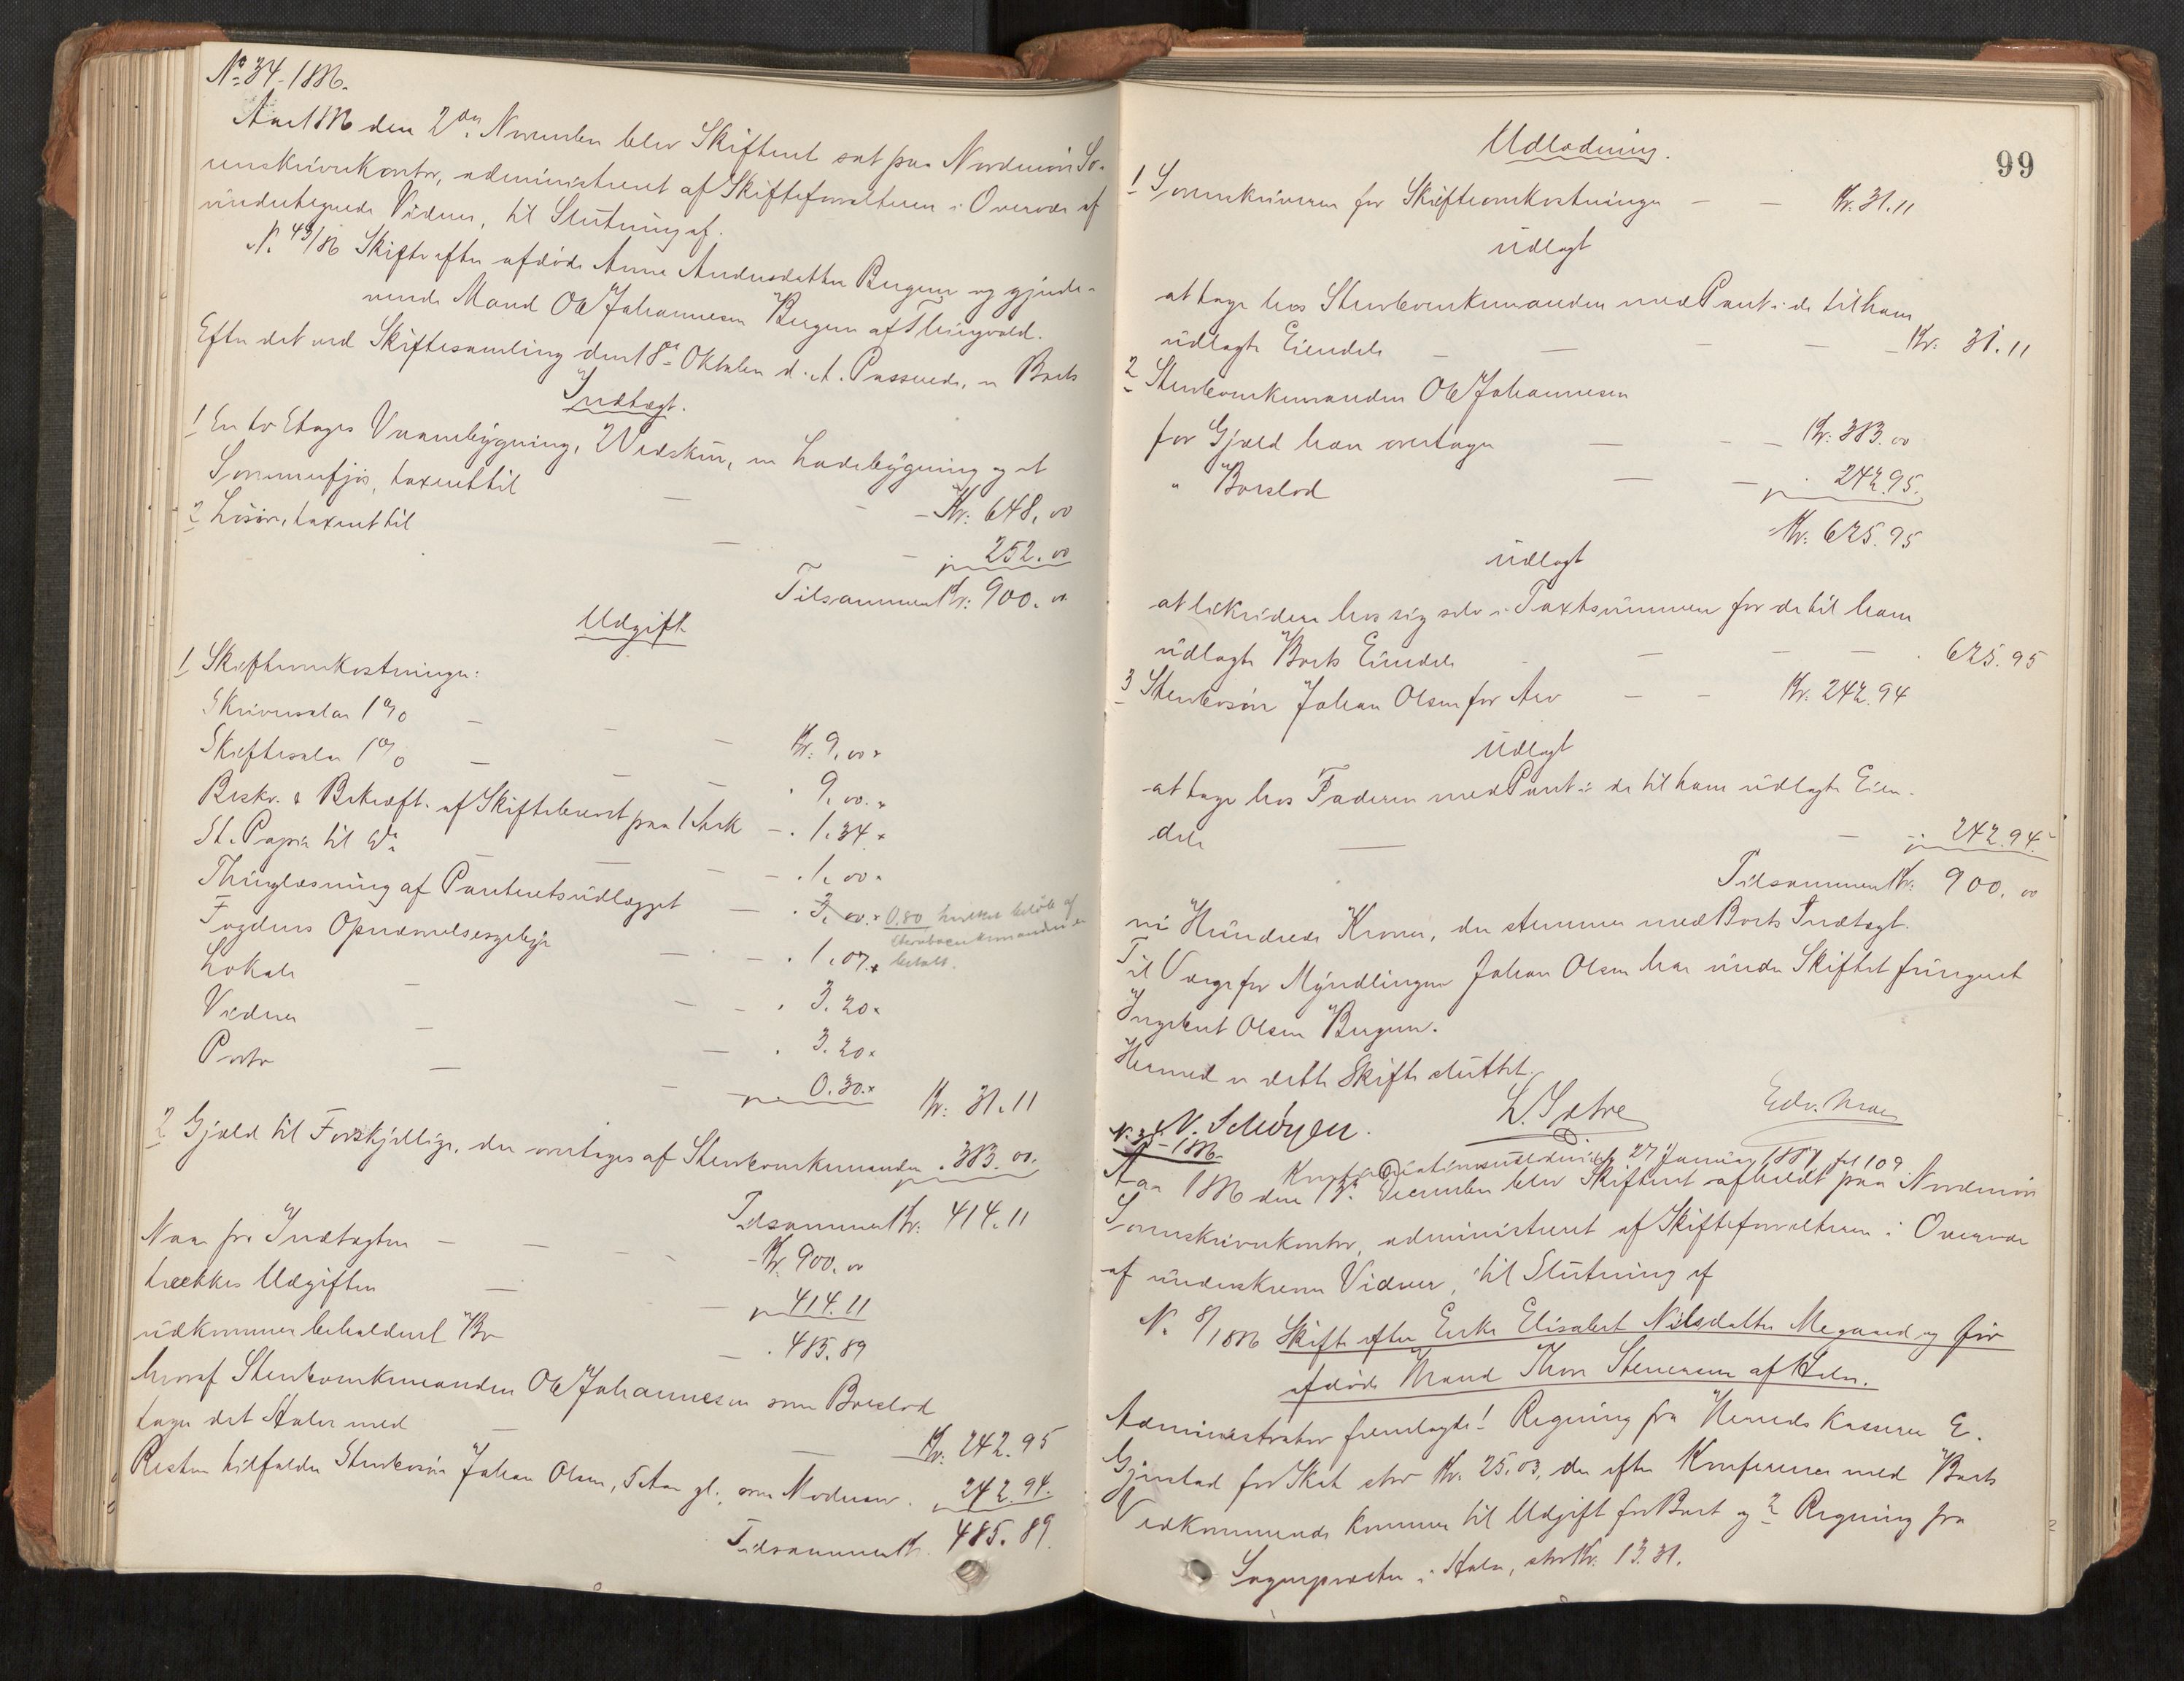 No 34-1886.
Aar 1886 den 2den November blev Skifteret sat paa Nordmør So-
renskriverkontor, administreret af Skifteforvalteren i Overvær af
undertegnede Vidner, til Slutning af.
No 49/86 Skifte efter afdøde Anne Andersdatter Bergem og gjenle-
vende Mand Ole Johannesen Bergem af Thingvold.
Efter det ved Skiftesamling den 18de Oktober d. A. Passerede, er Boets
Indtægt.
1 En to Etages Vaanebygning, Vedskur, en Ladebygning og et
Sommerfjøs, taxeret til — - - Kr: 648,00
2 Løsøre, taxeret til — - " 252.00
Tilsammen Kr: 900.00
Udgift
1 Skifteomkostninger:
Skriversalær 1% — - — Kr. 9,00
Skiftesalær 1% — — — " 9,00
Beskr. & Bekræft. af Skiftebrevet paa 1 Ark — . 1.34
St. Papir til Do — — - . 1.00
Thinglæsning af Panteretsudlægget — . 3.00 0.80 hvilket beløb af
Stervboenkemanden er
betalt.
Fogdens Opnævnelsesgebyr — - . 1.07
Lokale - — - . 3.20
Vidner — — . 3.20
Porto — — " 0.30 Kr. 31.11
2 Gjæld til Forskjellige, der overtages af Stervboenkemanden . 383.00
Tilsammen Kr: 414.11
Naar fra Indtægten - - - - Kr. 900.00
trækkes Udgiften — — " 414.11
udkommer beholdent Bo — . 485.89
hvoraf Stervboenkemanden Ole Johannesen som Boeslod
tager det Halve med — — Kr: 242.95
Resten tilfalder Stervbosøn Johan Olsen, 5 Aar gl., som Mødrearv . " 242.94.
Tilsammen Kr. 485.89.
99
Udlodning.
1 Sorenskriveren for Skifteomkostninger — — Kr. 31.11
udlagt
at tage hos Stervboenkemanden med Pant i de til ham
udlagte Eiendele — — - — Kr: 31.11
2 Stervboenkemanden Ole Johannesen
for Gjæld han overtager — - - Kr: 383.00
" Boeslod — — " 242.95.
Kr: 625.95
udlagt
at likvidere hos sig selv i Taxtsummen for de til ham
udlagte Boets Eiendele - — — — . 625.95
3 Stervbosøn Johan Olsen for Arv — - Kr: 242.94
udlagt
at tage hos Faderen med Pant i de til ham udlagte Eien-
dele — — " 242.94.
Tilsammen Kr: 900,00
ni Hundrede Kroner, der stemmer med Boets Indtægt.
Til Værge for Myndlingen Johan Olsen har under Skiftet fungeret
Ingebert Olsen Bergem.
Hermed er dette Skifte sluttet.
N. Schøyen. L. Sætre Edv. Moe
Konf. 27 Januar 1887 fol 109
No 35-1886.
Aar 1886 den 13de December blev Skifteret afholdt paa Nordmør
Sorenskriverkontor, administreret af Skifteforvalteren i Overvær
af underskrevne Vidner, til Slutning af
No 8/1886 Skifte efter Enke Elisabet Nilsdatter Megaard og før
afdøde Mand Thore Steneren af Halse.
Administrator fremlagde 1 Regning fra Herredskasserer E.
Gjerstad for Skat stor Kr. 25.03, der efter Konference med Boets
Vedkommende kommer til Udgift for Boet og 2 Regning fra
Sognepræsten i Halse, stor Kr. 13.31.